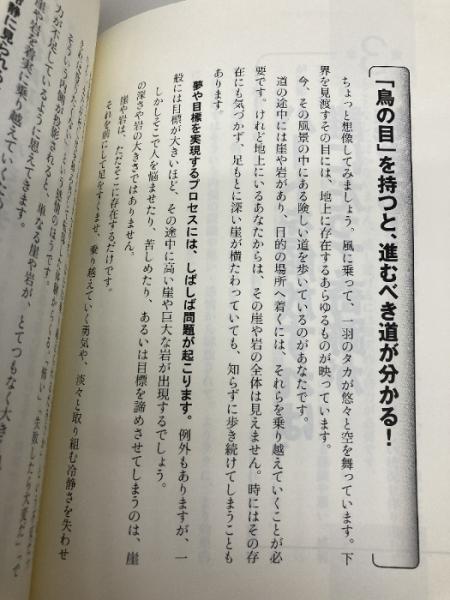 「鳥の目」を持つと、進むべき道が分かる！
ちょっと想像してみましょう。風に乗って、一羽のタカが悠々と空を舞っています。下
界を見渡すその目には、地上に存在するあらゆるものが映っています。
今、その風景の中にある険しい道を歩いているのがあなたです。
道の途中には崖や岩があり、目的の場所へ着くには、それらを乗り越えていくことが必
要です。けれど地上にいるあなたからは、その崖や岩の全体は見えません。時にはその存
在にも気づかず、足もとに深い崖が横たわっていても、知らずに歩き続けてしまうことも
あります。
夢や目標を実現するプロセスには、しばしば問題が起こります。例外もありますが、一
般には目標が大きいほど、その途中に高い崖や巨大な岩が出現するでしょう。
しかしそこで人を悩ませたり、苦しめたり、あるいは目標を諦めさせてしまうのは、崖
の深さや岩の大きさではありません。
崖や岩は、ただそこに存在するだけです。
それを前にして足をすくませ、乗り越えていく勇気や、淡々と取り組む冷静さを失わせ
力が不足しているように思えてきます。
崖や岩を着実に乗り越えていくため
冷静に見られる